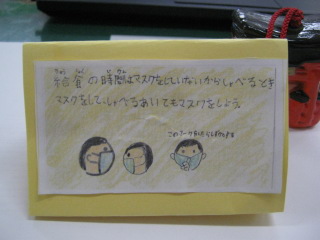 きゅう しょく じ かん
給食の時間はマスクをしていないからしゃべるとき
マスクをして、しゃべるあいてもマスクをしよう。
このマークを